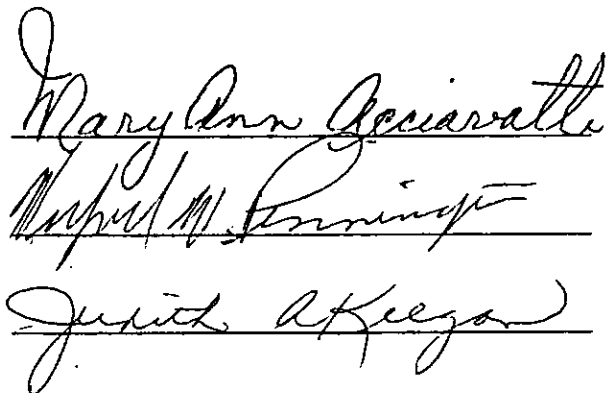 Mary Ann Acciavatti
M. Pennington
Judith A Keegan